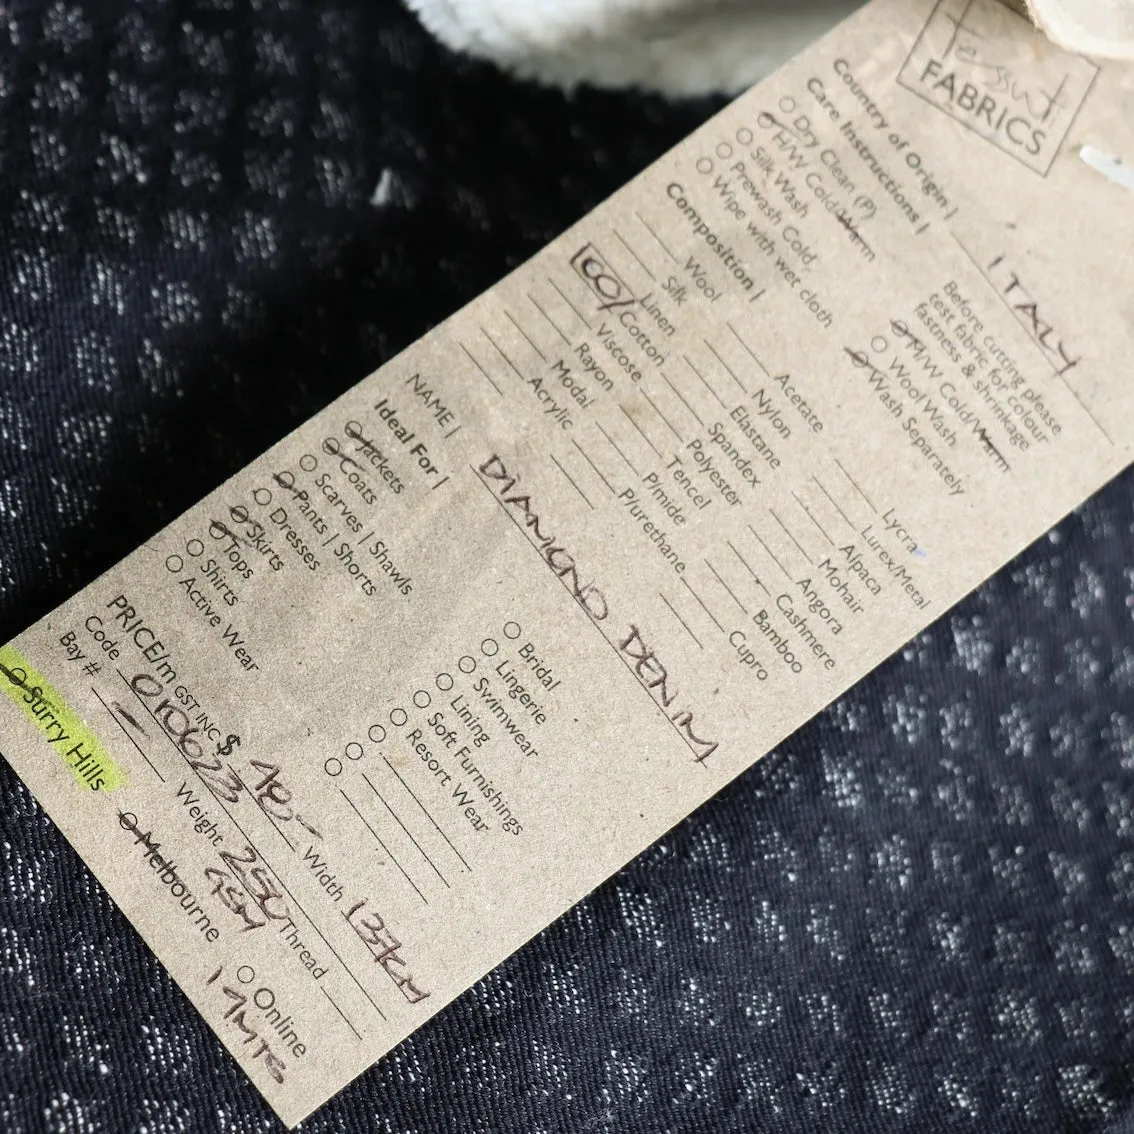 Tessuti
FABRICS
Country of Origin | ITALY
Care Instructions |
Dry Clean (P)
H/W Cold/Warm
Silk Wash
Prewash Cold
Wipe with wet cloth
Before cutting please
test fabric for colour
fastness & shrinkage
M/W Cold/Warm
Wool Wash
Wash Separately
Composition |
Wool
Silk
Linen
100/ Cotton
Viscose
Rayon
Modal
Acrylic
Acetate
Nylon
Elastane
Spandex
Polyester
Tencel
P/mide
P/urethane
Lycra
Lurex/Metal
Alpaca
Mohair
Angora
Cashmere
Bamboo
Cupro
NAME | DIAMOND DENIM
Ideal For |
Jackets
Coats
Scarves | Shawls
Pants | Shorts
Dresses
Skirts
Tops
Shirts
Active Wear
Bridal
Lingerie
Swimwear
Lining
Soft Furnishings
Resort Wear
PRICE/m GST INC $ 48.- Width 137CM
Code 010623 Weight 250 GSM Thread
Bay # -
Surry Hills
Melbourne
Online
19MTS